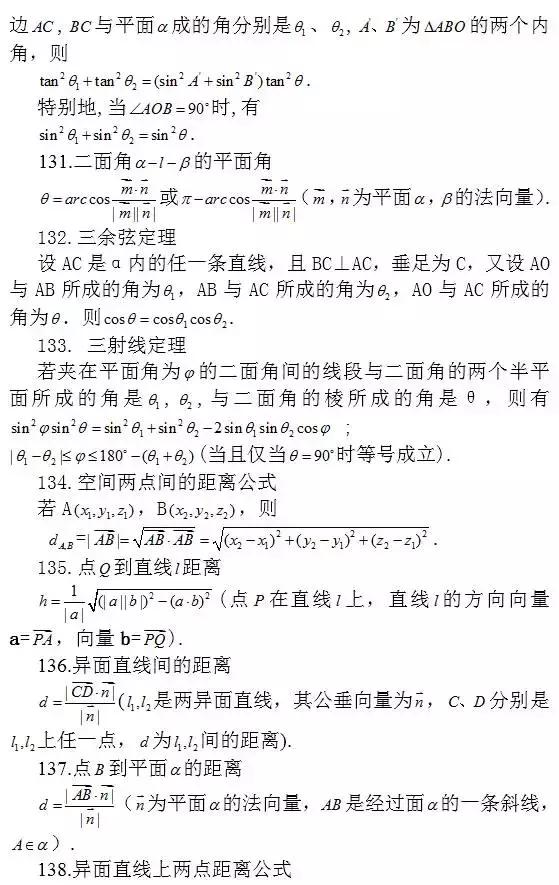 边AC, BC与平面α成的角分别是θ₁、θ₂, A'、B'为ΔABO的两个内
角，则
tan²θ₁+tan²θ₂=(sin²A'+sin²B')tan²θ.
特别地,当∠AOB=90°时,有
sin²θ₁+sin²θ₂=sin²θ.
131.二面角α-l-β的平面角
θ=arccos m⃗·n⃗/|m⃗||n⃗| 或π-arccos m⃗·n⃗/|m⃗||n⃗| (m⃗,n⃗为平面α,β的法向量).
132.三余弦定理
设AC是α内的任一条直线，且BC⊥AC，垂足为C，又设AO
与AB所成的角为θ₁，AB与AC所成的角为θ₂，AO与AC所成的
角为θ．则cosθ=cosθ₁cosθ₂.
133. 三射线定理
若夹在平面角为φ的二面角间的线段与二面角的两个半平
面所成的角是θ₁,θ₂,与二面角的棱所成的角是θ，则有
sin²φsin²θ=sin²θ₁+sin²θ₂-2sinθ₁sinθ₂cosφ ;
|θ₁-θ₂|≤φ≤180°-(θ₁+θ₂)(当且仅当θ=90°时等号成立).
134.空间两点间的距离公式
若A(x₁,y₁,z₁)，B(x₂,y₂,z₂)，则
d_A,B=|AB⃗|=√(AB⃗·AB⃗)=√((x₂-x₁)²+(y₂-y₁)²+(z₂-z₁)²).
135.点Q到直线l距离
h=1/|a| √((|a||b|)²-(a·b)²)(点P在直线l上，直线l的方向向量
a=PA⃗，向量b=PQ⃗).
136.异面直线间的距离
d=|CD⃗·n⃗|/|n⃗|(l₁,l₂是两异面直线，其公垂向量为n⃗，C、D分别是
l₁,l₂上任一点，d为l₁,l₂间的距离).
137.点B到平面α的距离
d=|AB⃗·n⃗|/|n⃗|（n⃗为平面α的法向量，AB是经过面α的一条斜线，
A∈α）.
138.异面直线上两点距离公式